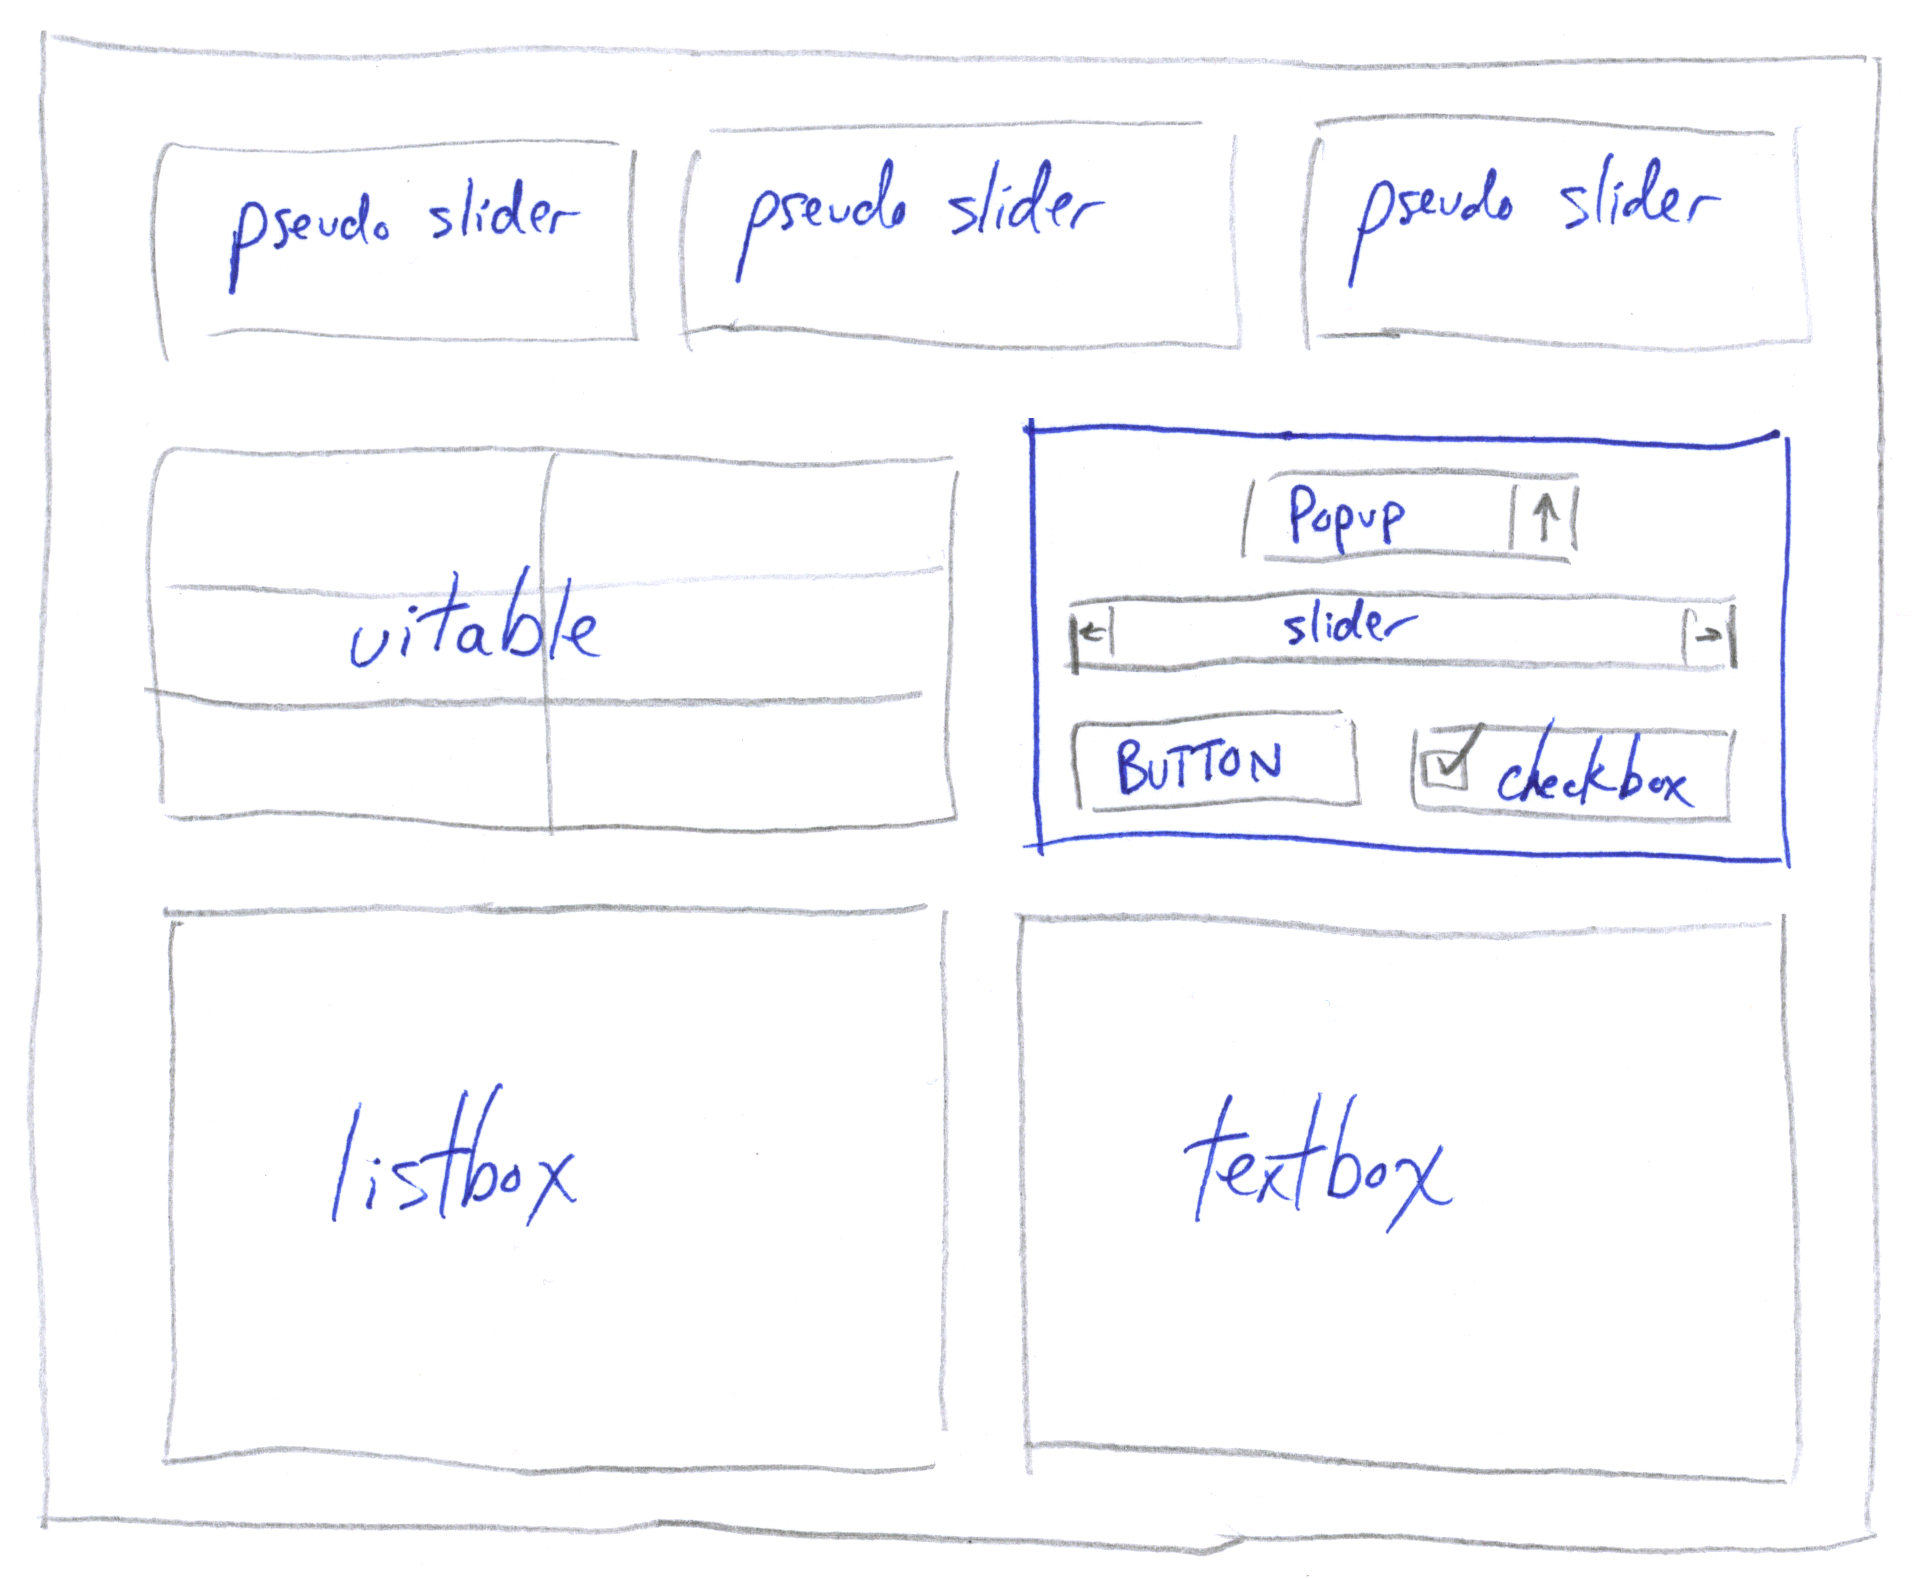 pseudo slider
pseudo slider
pseudo slider
uitable
Popup
slider
BUTTON
checkbox
listbox
textbox